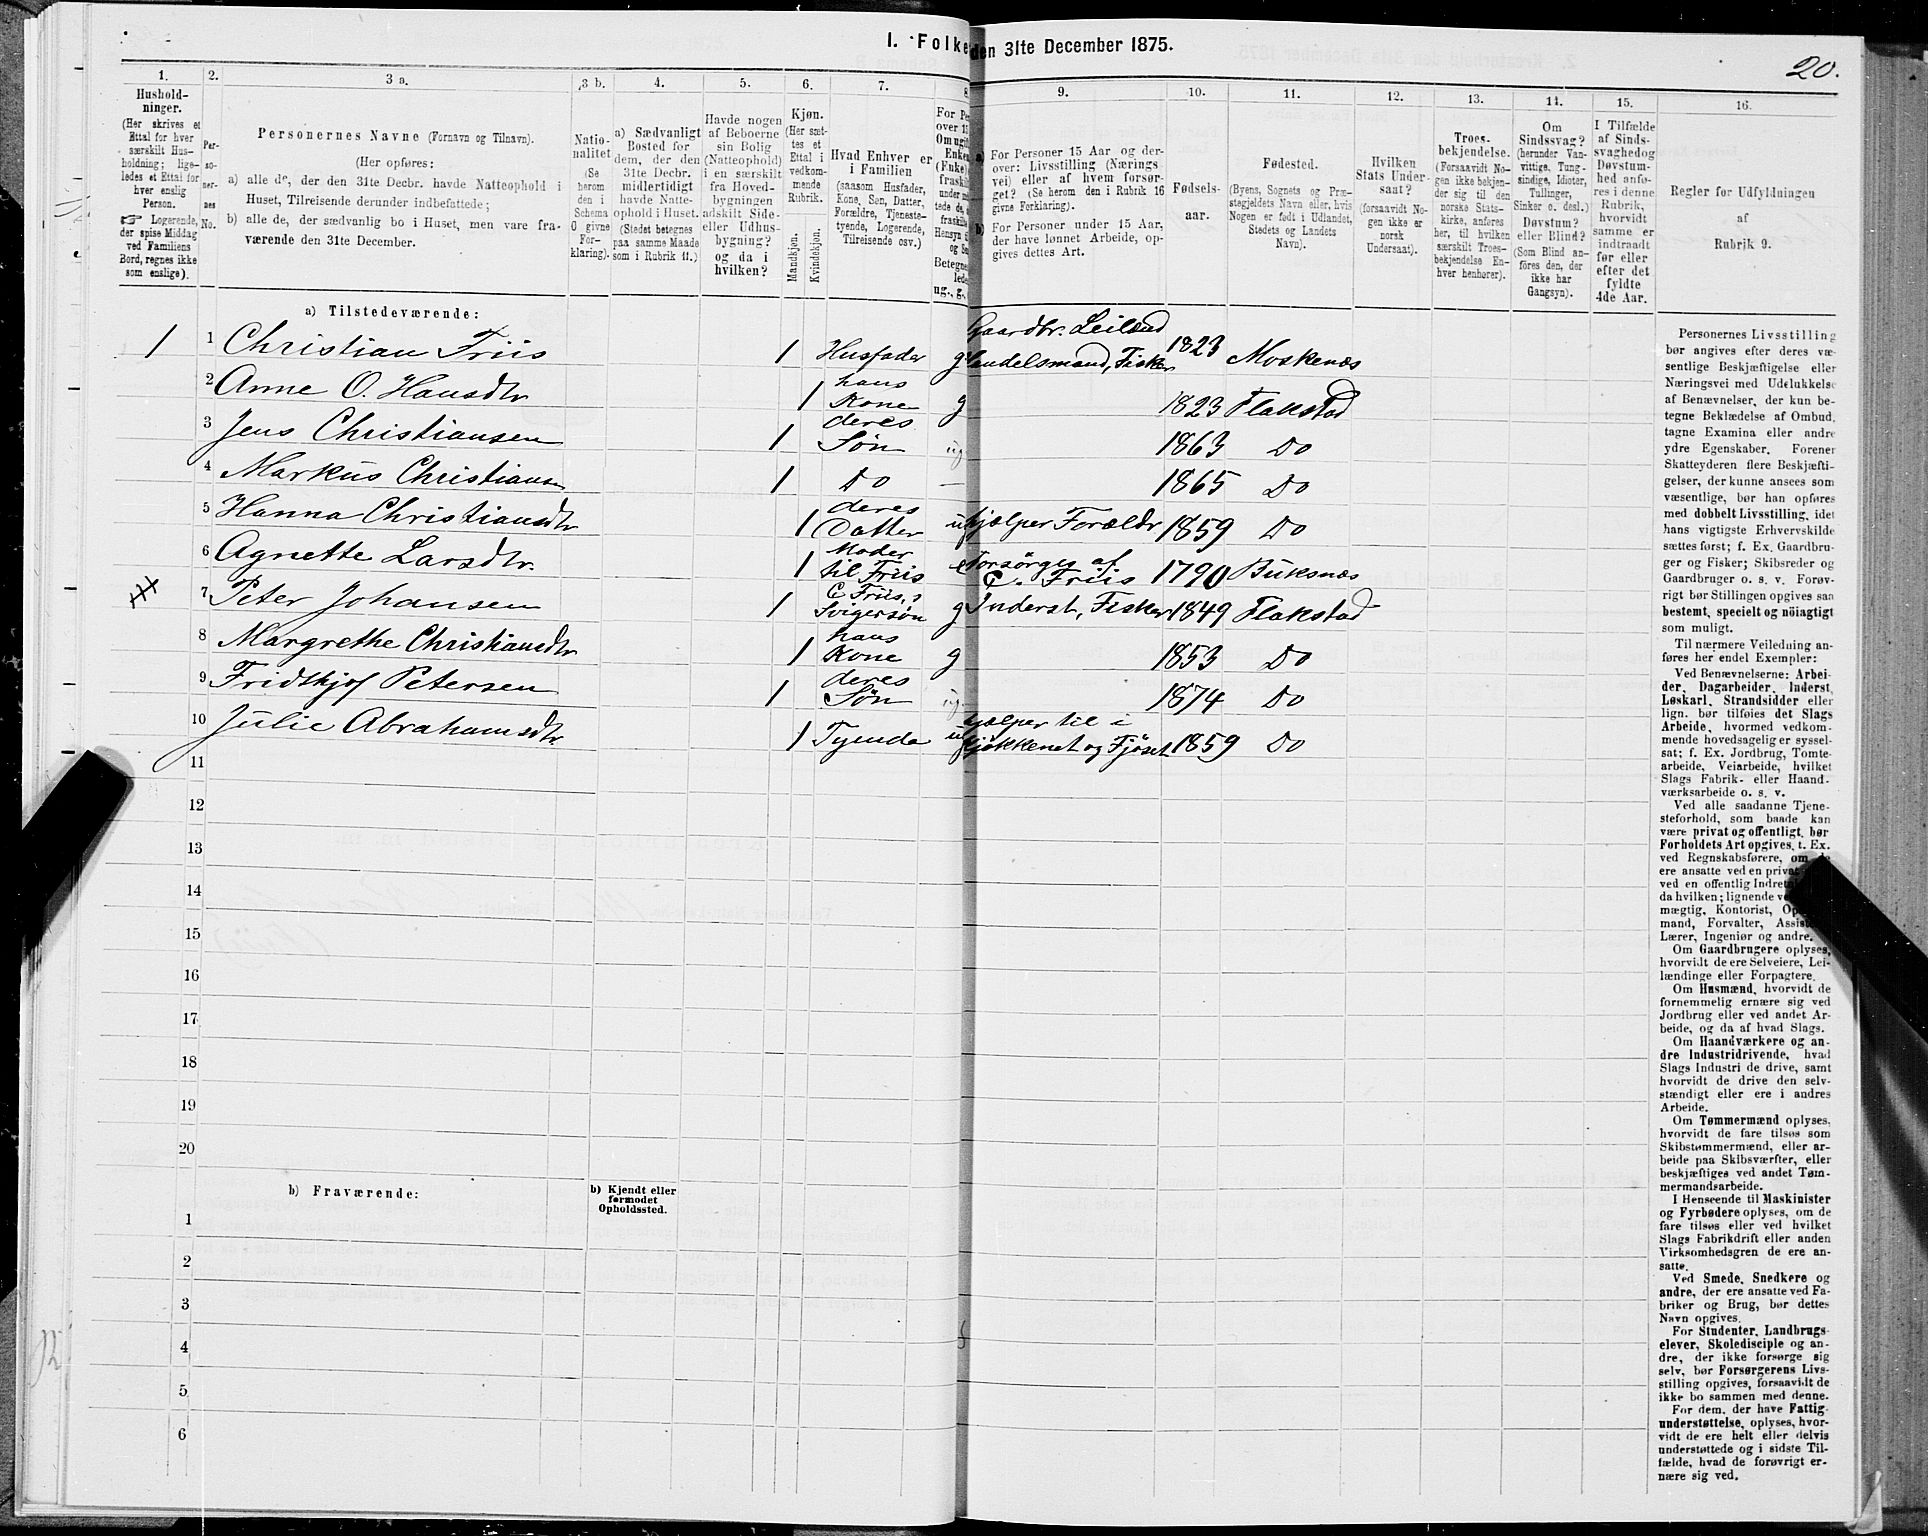 I. Folke den 31te December 1875.
20.
1.
Hushold-
ninger.
(Her skrives et
Ettal for hver
særskilt Hus-
holdning; lige-
ledes et Ettal for
hver enslig
Person.
☞ Logerende,
der spise Middag
ved Familiens
Bord, regnes ikke
som enslige).
2.
Per-
so-
ner-
nes
No.
3 a.
Personernes Navne (Fornavn og Tilnavn).
(Her opføres:
a) alle de, der den 31te Decbr. havde Natteophold i
Huset, Tilreisende derunder indbefattede;
b) alle de, der sædvanlig bo i Huset, men vare fra-
værende den 31te December.
3 b.
Natio-
nalitet
(Se
herom
den i
Schema
O givne
For-
klaring).
4.
a) Sædvanligt
Bosted for
dem, der den
31te Decbr.
midlertidigt
havde Natte-
ophold i Huset.
(Stedet betegnes
paa samme Maade
som i Rubrik 11.)
5.
Havde nogen
af Beboerne
sin Bolig
(Natteophold)
i en særskilt
fra Hoved-
bygningen
adskilt Side-
eller Udhus-
bygning?
og da i
hvilken?
6.
Kjøn.
(Her sæt-
tes et
Ettal i
vedkom-
mende
Rubrik.
Mandkjøn.
Kvindekjøn.
7.
Hvad Enhver er
i Familien
(saasom Husfader,
Kone, Søn, Datter,
Forældre, Tjeneste-
tyende, Logerende,
Tilreisende osv.)
8
For Pe
over 1
Om ugi
Enke
(Enke)
fraski
under
tede de,
fraskil
Hensyn
og Se
Betegne
lede
ug., g.,
9.
a) For Personer 15 Aar og der-
over: Livsstilling (Nærings
vei) eller af hvem forsør-
get? (Se herom den i Rubrik 16
givne Forklaring).
b) For Personer under 15 Aar,
der have lønnet Arbeide, op-
gives dettes Art.
10.
Fødsels-
aar.
11.
Fødested.
(Byens, Sognets og Præ-
stegjeldets Navn eller, hvis
Nogen er født i Udlandet,
Stedets og Landets
Navn).
12.
Hvilken
Stats Under-
saat?
(forsaavidt No-
gen ikke er
norsk
Undersaat).
13.
Troes-
bekjendelse.
(Forsaavidt No-
gen ikke bekjen-
der sig til den
norske Stats-
kirke, anføres
her, til hvilken
særskilt Troes-
bekjendelse En-
hver henhører).
14.
Om
Sindssvag?
(herunder Van-
vittige, Tung-
sindige, Idioter,
Tullinger,
Sinker o. desl.)
Døvstum?
eller Blind?
(Som Blind an-
føres den, der
ikke har
Gangsyn).
15.
I Tilfælde
af Sinds-
svaghedog
Døvstum-
hed anfø-
res i denne
Rubrik,
hvorvidt
samme er
indtraadt
før eller
efter det
fyldte
4de Aar.
16.
Regler for Udfyldningen
af
Rubrik 9.
a) Tilstedeværende:
1 1 Christian Friis 1 Husfader g Gaardbr. Leilend
Handelsmand, Fisker 1823 Moskenæs
2 Anne O. Hansdtr 1 hans
Kone g 1823 Flakstad
3 Jens Christiansen 1 deres
Søn ug 1863 Do
4 Markus Christiansen 1 Do — 1865 Do
5 Hanna Christiansdtr 1 deres
Datter u hjælper Forældr 1859 Do
6 Agnette Larsdtr. 1 Moder
til Friis e Forsørges af
C. Friis 1790 Buksnæs
7 Peter Johansen 1 C Friis,s
Svigersøn g Inderst, Fisker 1849 Flakstad
8 Margrethe Christiansdtr 1 hans
Kone g 1853 Do
9 Fridthjof Petersen 1 deres
Søn ug 1874 Do
10 Julie Abrahamsdtr 1 Tyende u hjælper til i
Kjøkkenet og Fjöset 1859 Do
11
12
13
14
15
16
17
18
19
20
b) Fraværende:
b) Kjendt eller
formodet
Opholdssted.
1
2
3
4
5
6
Personernes Livsstilling
bør angives efter deres væ-
sentlige Beskjæftigelse eller
Næringsvei med Udelukkelse
af Benævnelser, der kun be-
tegne Beklædelse af Ombud,
tagne Examina eller andre
ydre Egenskaber. Forener
Skatteyderen flere Beskjæfti-
gelser, der kunne ansees som
væsentlige, bør han opføres
med dobbelt Livsstilling, idet
hans vigtigste Erhvervskilde
sættes først; f. Ex. Gaardbru-
ger og Fisker; Skibsreder og
Gaardbruger o. s. v. Forøv-
rigt bør Stillingen opgives saa
bestemt, specielt og nøiagtigt
som muligt.
Til nærmere Veiledning an-
føres her endel Exempler:
Ved Benævnelserne: Arbei-
der, Dagarbeider, Inderst,
Løskarl, Strandsidder eller
lign. bør tilføies det Slags
Arbeide, hvormed vedkom-
mende hovedsagelig er syssel-
sat; f. Ex. Jordbrug, Tomte-
arbeide, Veiarbeide, hvilket
Slags Fabrik- eller Haand-
værksarbeide o. s. v.
Ved alle saadanne Tjene-
steforhold, som baade kan
være privat og offentligt, bør
Forholdets Art opgives, t. Ex.
ved Regnskabsførere, om de
ere ansatte ved en privat
ved en offentlig Indret
da hvilken; lignende ve
mægtig, Kontorist, Op
mand, Forvalter, Assis
Lærer, Ingeniør og andre.
Om Gaardbrugere oplyses,
hvorvidt de ere Selveiere, Lei-
lændinge eller Forpagtere.
Om Husmænd, hvorvidt de
fornemmelig ernære sig ved
Jordbrug eller ved andet Ar-
beide, og da af hvad Slags.
Om Haandværkere og an-
dre Industridrivende, hvad
Slags Industri de drive, samt
hvorvidt de drive den selv-
stændigt eller ere i andres
Arbeide.
Om Tømmermænd oplyses,
hvorvidt de fare tilsøs som
Skibstømmermænd, eller ar-
beide paa Skibsværfter, eller
beskjæftiges ved andet Tøm-
mermandsarbeide.
I Henseende til Maskinister
og Fyrbødere oplyses, om de
fare tilsøs eller ved hvilket
Slags Fabrikdrift eller anden
Virksomhedsgren de ere an-
satte.
Ved Smede, Snedkere og
andre, der ere ansatte ved Fa-
briker og Brug, bør dettes
Navn opgives.
For Studenter, Landbrugs-
elever, Skoledisciple og an-
dre, der ikke forsørge sig
selv, bør Forsørgerens Livs-
stilling opgives, forsaavidt de
ikke bo sammen med denne.
For dem, der have Fattig-
understøttelse, oplyses, hvor-
vidt de ere helt eller delvis
understøttede og i sidste Til-
fælde, hvad de forøvrigt er-
nære sig ved.